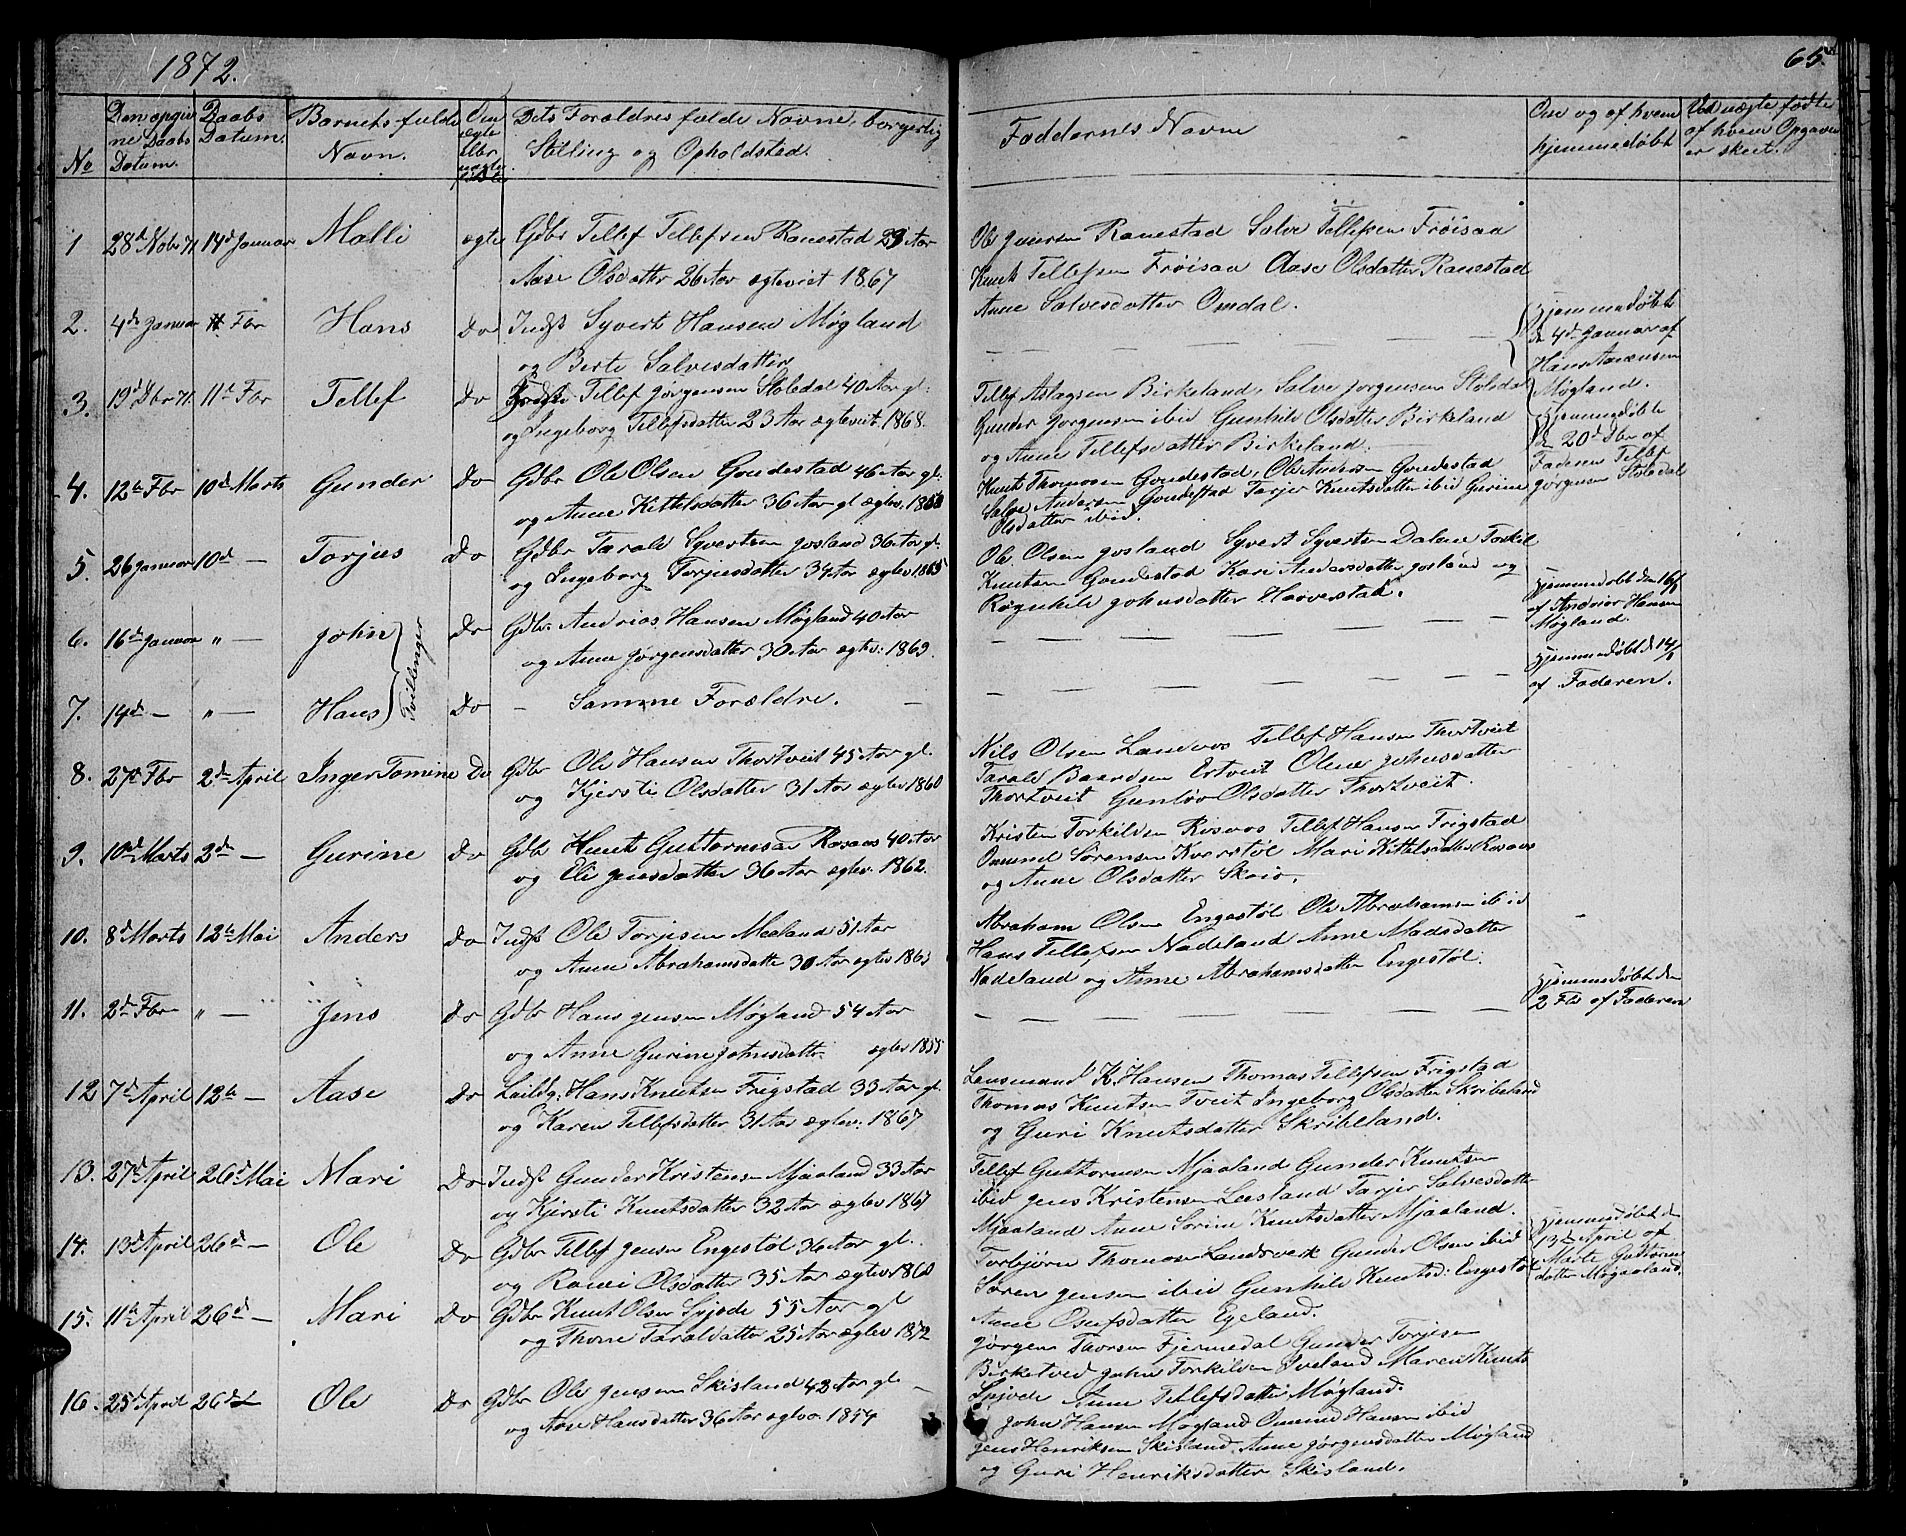 1872.
65.
No
Den opgivne Daabs Datum.
Daabs Datum.
Barnets fulde Navn.
Om ægte eller uægte født
Dets Foraldres fulde Navne, borgerlig Stilling og Opholdsted.
Faddernes Navne
Om og af hvem hjemmedøbt
Ved uægte fødte af hvem Opgaven er skeet.
1 28d Nobr 71 14d Januar Malli ægte Gdbr Tellef Tellefsen Ranestad 29 Aar
Aase Olsdatter 26 Aar ægteviet 1867
Ole Jensen Ranestad Salve Tellefsen Frøisaa
Knut Tellefsen Frøisaa Aase Olsdatter Ranestad
Anne Salvesdatter Omdal.
2. 4de Januar Fbr Hans Do Indst Syvert Hansen Møgland
og Berte Salvesdatter
Hjemmedøbt
den 4de Januar af
Hans Aanensen
Møgland.
3. 19d Dbr 71. 11te Fbr Tellef Do Tellef Jørgensen Stoledal 40 Aar gl:
og Ingeborg Tellefsdatter 23 Aar ægteviet 1868.
Tellef Aslagsen Birkeland, Salve Jørgensen Stoledal
Gunder Jørgensen ibid Gunhild Olsdatter Birkeland
og Anne Tellefsdatter Birkeland.
Hjemmedøbt
den 20d Dbr af
Faderen Tellef
Jørgensen Stoledal
4. 12te Fbr 10d Marts Gunder Do Gdbr Ole Olsen Goudestad 46 Aar gl:
og Anne Kittelsdatter 36 Aar gl ægtev.
Knut Thomasen Goudestad, Ole Andersen Goudestad
Salve Andersen Goudestad Tarjer Knutsdatter ibid Gurine
Olsdatter ibid.
5. 26 Januar 10d — Torjus Do Gdbr Tarald Syvertsen Josland 36 Aar gl.
og Ingeborg Torjusdatter 34 Aar ægtev 1865
Ole Olsen Josland Syvert Syvertsen Dalene Torkil
Knutsen Goudestad Kari Andersdatter Josland og
Røgnhild Johnsdatter Haaverstad.
6. 16de Januar " — John Do Gdbr. Andrias Hansen Møgland 40 Aar
og Anne Jørgensdatter 30 Aar ægtev: 1869.
Tvillinger
Hjemmedøbt den 16/1
af Andrias Hansen
Møgland.
7. 14de — " — Hans Do — Samme Forældre. —
Hjemmedøbt d 14/1
af Faderen.
8. 27de Fbr 2den April Inger Tomine Do Gdbr Ole Hansen Thortveit 45 Aar gl.
og Kjersti Olsdatter 31 Aar ægtev 1860
Nils Olsen Landaas Tellef Hansen Thortveit
Tarald Baardsen Ertveit Olene Johnsdatter
Thortveit Gunløv Olsdatter Thortveit
9. 10d Marts 2den — Gurine Do Gdbr Knut Guttormsen Rosaas 40 Aar
og Eli Jensdatter 36 Aar ægtev. 1862.
Kristen Torkildsen Rosaas Tellef Hansen Frigstad
Omund Sørensen Kverstøl Mari Kittelsdatter Rosaas
og Anne Olsdatter Skaio.
10. 8d Marts 12te Mai Anders Do Indst Ole Torjesen Meeland 51 Aar
og Anne Abrahamsdatter 30 Aar ægtev 1863
Abraham Olsen Engestøl Ole Abrahamsen ibid
Hans Tellefsen Nadeland Anne Madsdatter
Nadeland og Anne Abrahamsdatter Engestøl.
11. 2den Fbr " — Jens Do Gdbr Hans Jensen Møgland 54 Aar
og Anne Gurine Johnsdatter ægtev 1855
Hjemmedøbt den
2 Fbr af Faderen
12 7d April 12te — Aase Do Leildg. Hans Knutsen Frigstad 33 Aar gl.
og Karen Tellefsdatter 31 Aar ægtev. 1867
Lensmand K. Hansen Thomas Tellefsen Frigstad
Thomas Knutsen Tveit Ingeborg Olsdatter Skribeland
og Guri Knutsdatter Skribeland.
13. 27d April 26d Mai Mari Do Indst Gunder Kristensen Mjaaland 33 Aar
og Kjersti Knutsdatter 32 Aar ægtev 1867
Tellef Guttormsen Mjaaland Gunder Knutsen
ibid Jens Kristensen Lausland Tarjer Salvesdatter
Mjaaland Anne Sørine Knutsdatter Mjaaland.
14. 13d April 26d — Ole Do Gdbr Tellef Jensen Engestøl 36 Aar gl.
og Ranei Olsdatter 35 Aar ægtev 1860
Torbjørn Thomasen Landsverk Gunder Olsen ibid
Søren Jensen ibid Gunhild Knutsd: Engestøl
Anne Osufsdatter Egeland.
Hjemmedøbt den
13de April af
Marte Guttormsdatter Møgaaland.
15. 11te April 26d — Mari Do Gdbr Knut Olsen Spjode 55 Aar gl
og Thone Taraldsdatter 25 Aar ægtev 1872
Jørgen Thorsen Fjermedal Gunder Torjesen
Birketved John Torkildsen Iveland Maren Knuts
Spjode Anne Tellefsdatter Møgland.
16. 25d April 26d Ole Do Gdbr Ole Jensen Skisland 43 Aar gl —
og Aase Hansdatter 36 Aar ægtev. 1854
John Hansen Møgland Omund Hansen ibid
Jens Henriksen Skisland Anne Jørgensdatter Møgland
og Guri Henriksdatter Skisland.